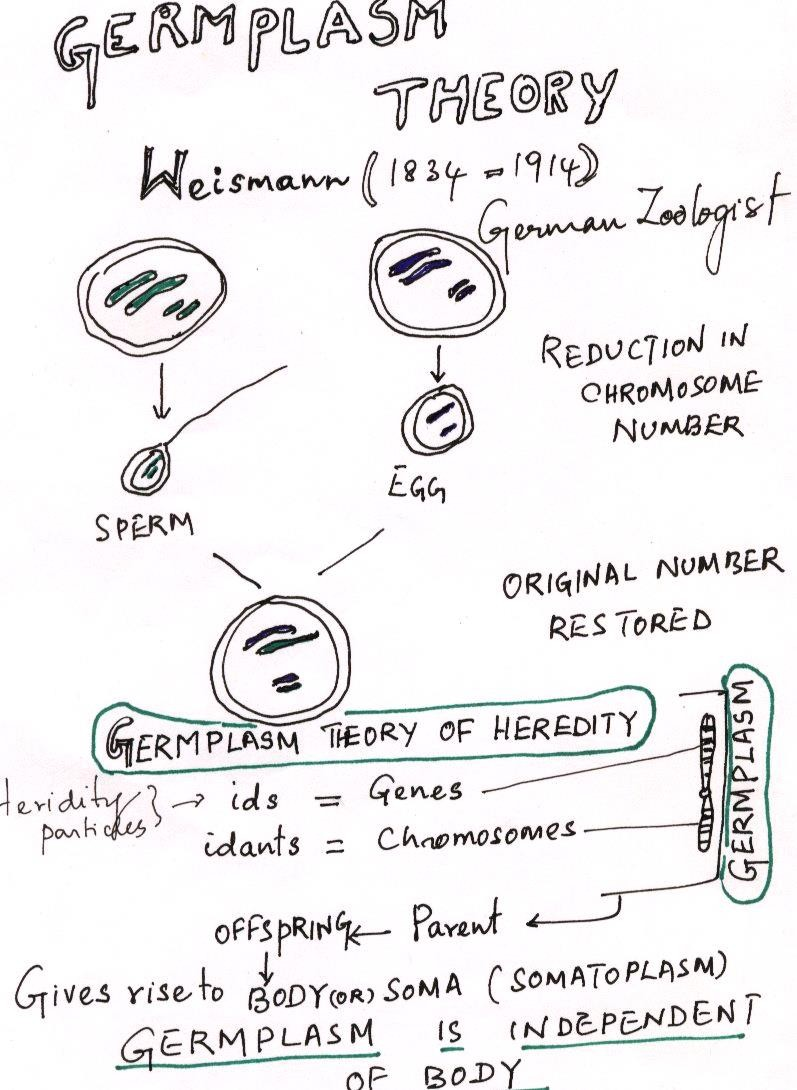 GERMPLASM
THEORY
Weismann (1834 - 1914)
German Zoologist
REDUCTION IN
CHROMOSOME
NUMBER
SPERM
EGG
ORIGINAL NUMBER
RESTORED
GERMPLASM THEORY OF HEREDITY
GERMPLASM
Heridity
particles } → ids = Genes
idants = Chromosomes
OFFSPRING ← Parent ←
Gives rise to BODY (OR) SOMA (SOMATOPLASM)
GERMPLASM IS INDEPENDENT
OF BODY